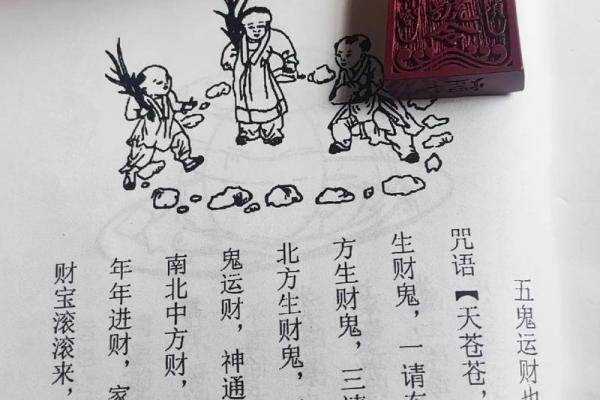 五鬼运财也
咒语【天苍苍，
生财鬼，一请东
方生财鬼，三请
北方生财鬼，
鬼运财，神通
南北中方财，
年年进财，家
财宝滚滚来，